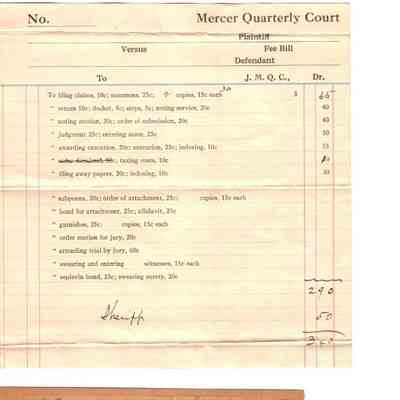 No. Mercer Quarterly Court
Plaintiff
Versus Fee Bill
Defendant
To J. M. Q. C., Dr.
To filing claims, 10c; summons, 25c; copies, 15c each 30 $ 65
" return 10c; docket, 5c; steps, 5c; noting service, 20c 40
" noting motion, 20c; order of submission, 20c 40
" judgment 25c; entering same, 25c 50
" awarding execution, 20c; execution, 25c; indexing, 10c 55
" taxing costs, 10c
" filing away papers, 20c; indexing, 10c 30
" subpoena, 20c; order of attachment, 25c; copies, 15c each
" bond for attachment, 25c; affidavit, 25c
" garnishee, 25c; copies, 15c each
" order motion for jury, 20c
" attending trial by jury, 60c
" swearing and entering witnesses, 15c each
" replevin bond, 25c; swearing surety, 20c
290
Sheriff 50